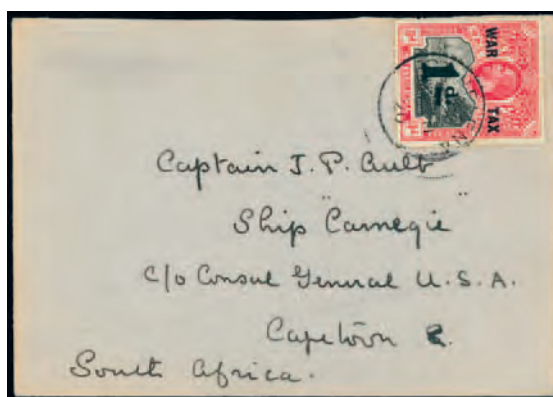 WAR TAX
1d.
Captain J. P. Ault
Ship "Carnegie"
c/o Consul General U.S.A.
Capetown
South Africa.